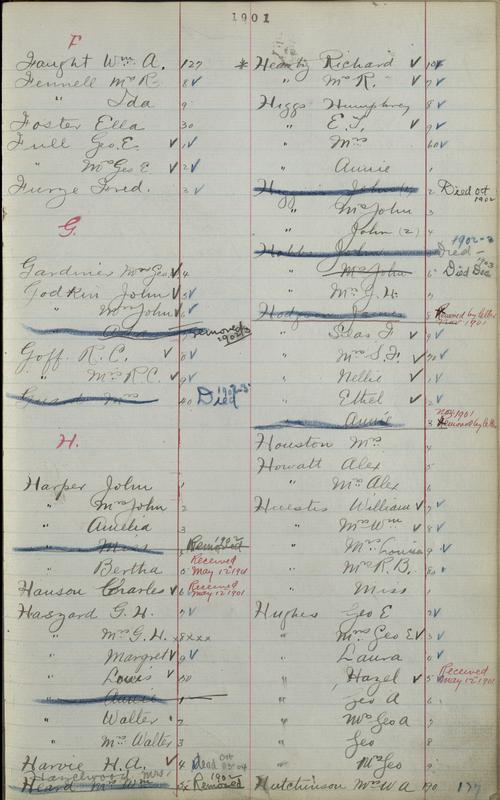 1901
F
Faught Wm A. 127
Fennell Mrs R. 8 ✓
" Ida 9
Foster Ella 30
Full Geo. E. ✓ 1 ✓
" Mrs Geo E ✓ 2 ✓
Furze Fred. 3 ✓
G.
Gardiner Mrs Geo ✓ 4
Godkin John ✓ 5 ✓
" Mrs John ✓ 6 ✓
" Removed 1902/3
Goff. R. C. ✓ 8 ✓
" Mrs R.C. ✓ 9 ✓
Mrs 40 Died 1902-3
H.
Harper John 1
" Mrs John 2
" Amelia 3
" Miss Removed 1902
" Bertha Received May 12 1901
Hanson Charles ✓ 6 Received May 12 1901
Haszard G. H. 7 ✓
" Mrs G. H. x8xxx
" Margret ✓ 9 ✓
" Louis ✓ 50
" Annie 1
" Walter 2
" Mrs Walter 3
Harvie H. A. ✓ 4 Dead Oct
Hazelwood Mrs
Heard Mrs Wm Removed 1902
* Heartz Richard ✓
" Mrs R. ✓ 7 ✓
Higgs Humphrey 8 ✓
" E. T. ✓ 9 ✓
" Mrs 60 ✓
" Annie 1
John (1) 2 Died Oct 1902
" Mrs John 3
" John (2) 4
Hobbs John Died 1902-3
" Mrs John 6 Died Dec 1903
" Mrs G. H. 7
Hodgson James 8 Removed by letter 1901
" Seas F ✓ 9 ✓
" Mrs S. F. ✓ 70 ✓
" Nellie ✓ 1 ✓
" Ethel ✓ 2 ✓
" Annie 3 Removed by letter Nov 1901
Houston Mrs 4
Howatt Alex 5
" Mrs Alex 6
Huestis William ✓ 7 ✓
" Mrs Wm ✓ 8 ✓
" Mrs Louisa 9 ✓
" Mrs R. B. 80 ✓
" Miss 1
Hughes Geo E 2 ✓
" Mrs Geo E ✓ 3 ✓
" Laura 4 ✓
" Hazel ✓ 5 Received May 12 1901
" Geo A 6
" Mrs Geo A 7
" Geo 8
" Mrs Geo 9
Hutchinson Mrs W A 190
177